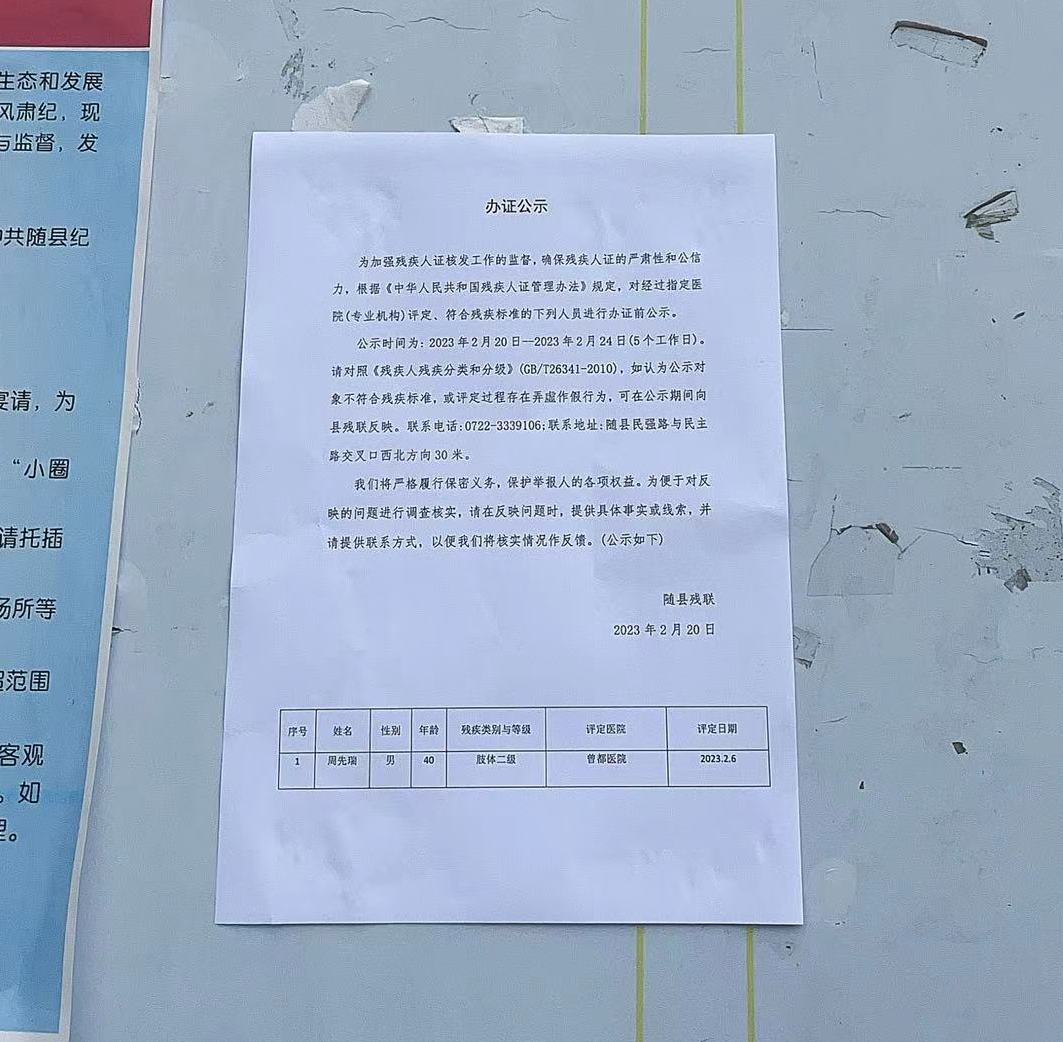 生态和发展
风肃纪，现
与监督，发
中共随县纪
宴请，为
“小圈
请托插
场所等
超范围
客观
。如
理。
办证公示
为加强残疾人证核发工作的监督，确保残疾人证的严肃性和公信
力，根据《中华人民共和国残疾人证管理办法》规定，对经过指定医
院(专业机构)评定、符合残疾标准的下列人员进行办证前公示。
公示时间为：2023年2月20日—2023年2月24日(5个工作日)。
请对照《残疾人残疾分类和分级》(GB/T26341-2010)，如认为公示对
象不符合残疾标准，或评定过程存在弄虚作假行为，可在公示期间向
县残联反映。联系电话:0722-3339106;联系地址:随县民强路与民主
路交叉口西北方向30米。
我们将严格履行保密义务，保护举报人的各项权益。为便于对反
映的问题进行调查核实，请在反映问题时，提供具体事实或线索，并
请提供联系方式，以便我们将核实情况作反馈。(公示如下)
随县残联
2023年2月20日
序号 姓名 性别 年龄 残疾类别与等级 评定医院 评定日期
1 周先瑞 男 40 肢体二级 曾都医院 2023.2.6